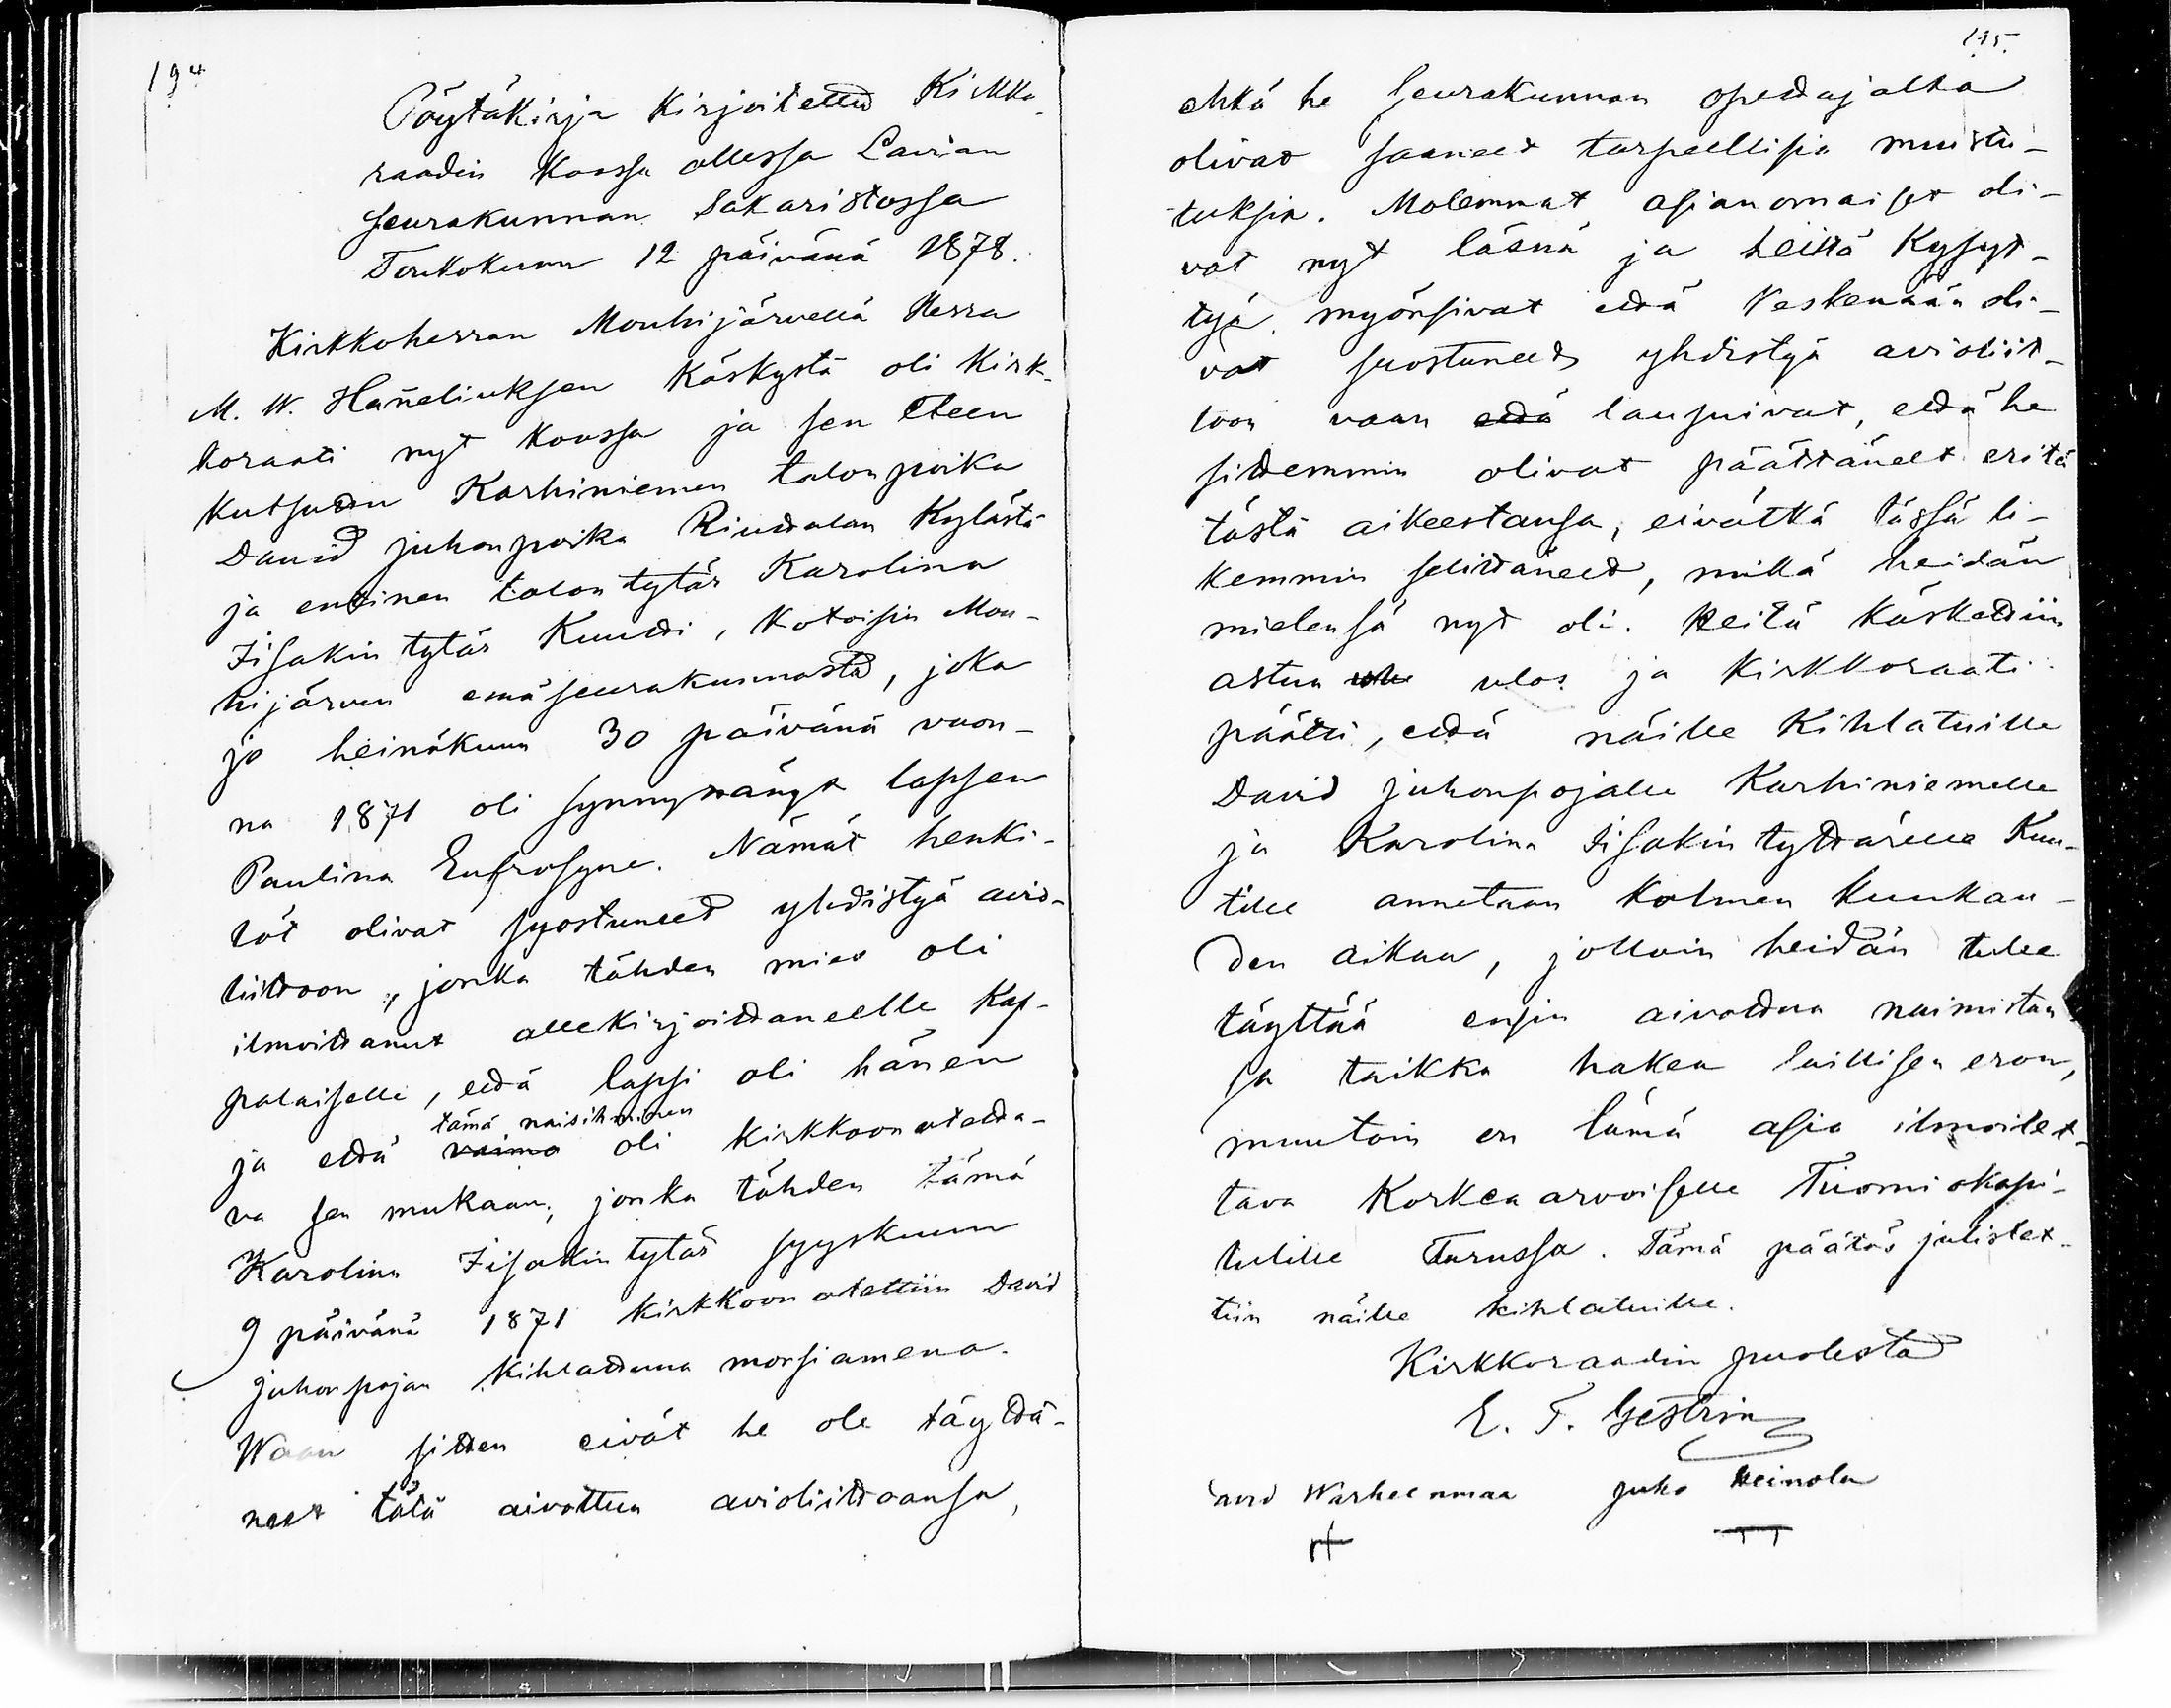 194
Pöytäkirja kirjoitettu Kirkko-
raadin koossa ollessa Lavian
seurakunnan Sakaristossa
Toukokuun 12 päivänä 1878.
Kirkkoherran Mouhijärvellä Herra
M. W. Hañeliuksen käskystä oli kirk-
koraati nyt koossa ja sen eteen
kutsuttu Karhiniemen talonpoika
David Juhonpoika Riuttalan kylästä
ja entinen talontytär Karolina
Iisakintytär Kuutti, kotoisin Mou-
hijärven emäseurakunnasta, joka
jo heinäkuun 30 päivänä vuon-
na 1871 oli synnyttänyt lapsen
Paulina Eufrosyne. Nämät henki-
löt olivat suostuneet yhdistyä avio-
liittoon, jonka tähden mies oli
ilmoittanut allekirjoittaneelle kap-
palaiselle, että lapsi oli hänen
tämä naisihminen
ja että vaimo oli kirkkoonotetta-
va sen mukaan, jonka tähden tämä
Karolina Iisakintytär syyskuun
9 päivänä 1871 kirkkoonotettiin David
Juhonpojan kihlattuna morsiamena.
Waan sitten eivät he ole täyttä-
neet tätä aivottua avioliittoansa,
195.
ehkä he seurakunnan opettajalta
olivat saaneet tarpeellisia muistu-
tuksia. Molemmat asianomaiset oli-
vat nyt läsnä ja heiltä kysyt-
tyä myönsivat että keskenään oli-
vat suostuneet yhdistyä avioliit-
toon vaan että lausuivat, että he
sittemmin olivat päättäneet eritä
tästä aikeestansa, eivätkä tässä li-
kemmin selittäneet, mikä heidän
mielensä nyt oli. Heitä käskettiin
astua ulos ja Kirkkoraati
päätti, että näille kihlatuille
David Juhonpojalle Karhiniemelle
ja Karolina Iisakintyttärelle Kuu-
tille annetaan kolmen kuukau-
den aikaa, jolloin heidän tulee
täyttää ensin aivottua naimistan
sa taikka hakea laillisen eron,
muutoin on tämä asia ilmoitet-
tava Korkeaarvoiselle Tuomiokapi-
tulille Turussa. Tämä päätös julistet-
tiin näille kihlatuille.
Kirkkoraadin puolesta
E. F. Gestrin
Warheenmaa Juho Heinola